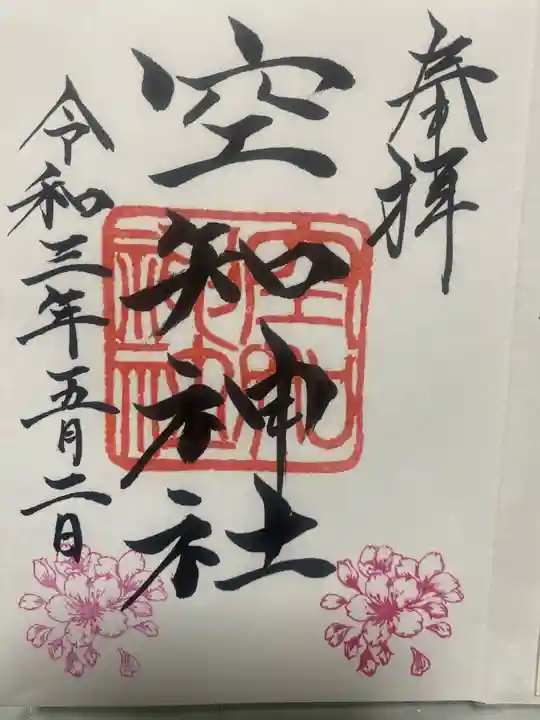 奉拝
空知神社
空知
神社
令和三年五月二日